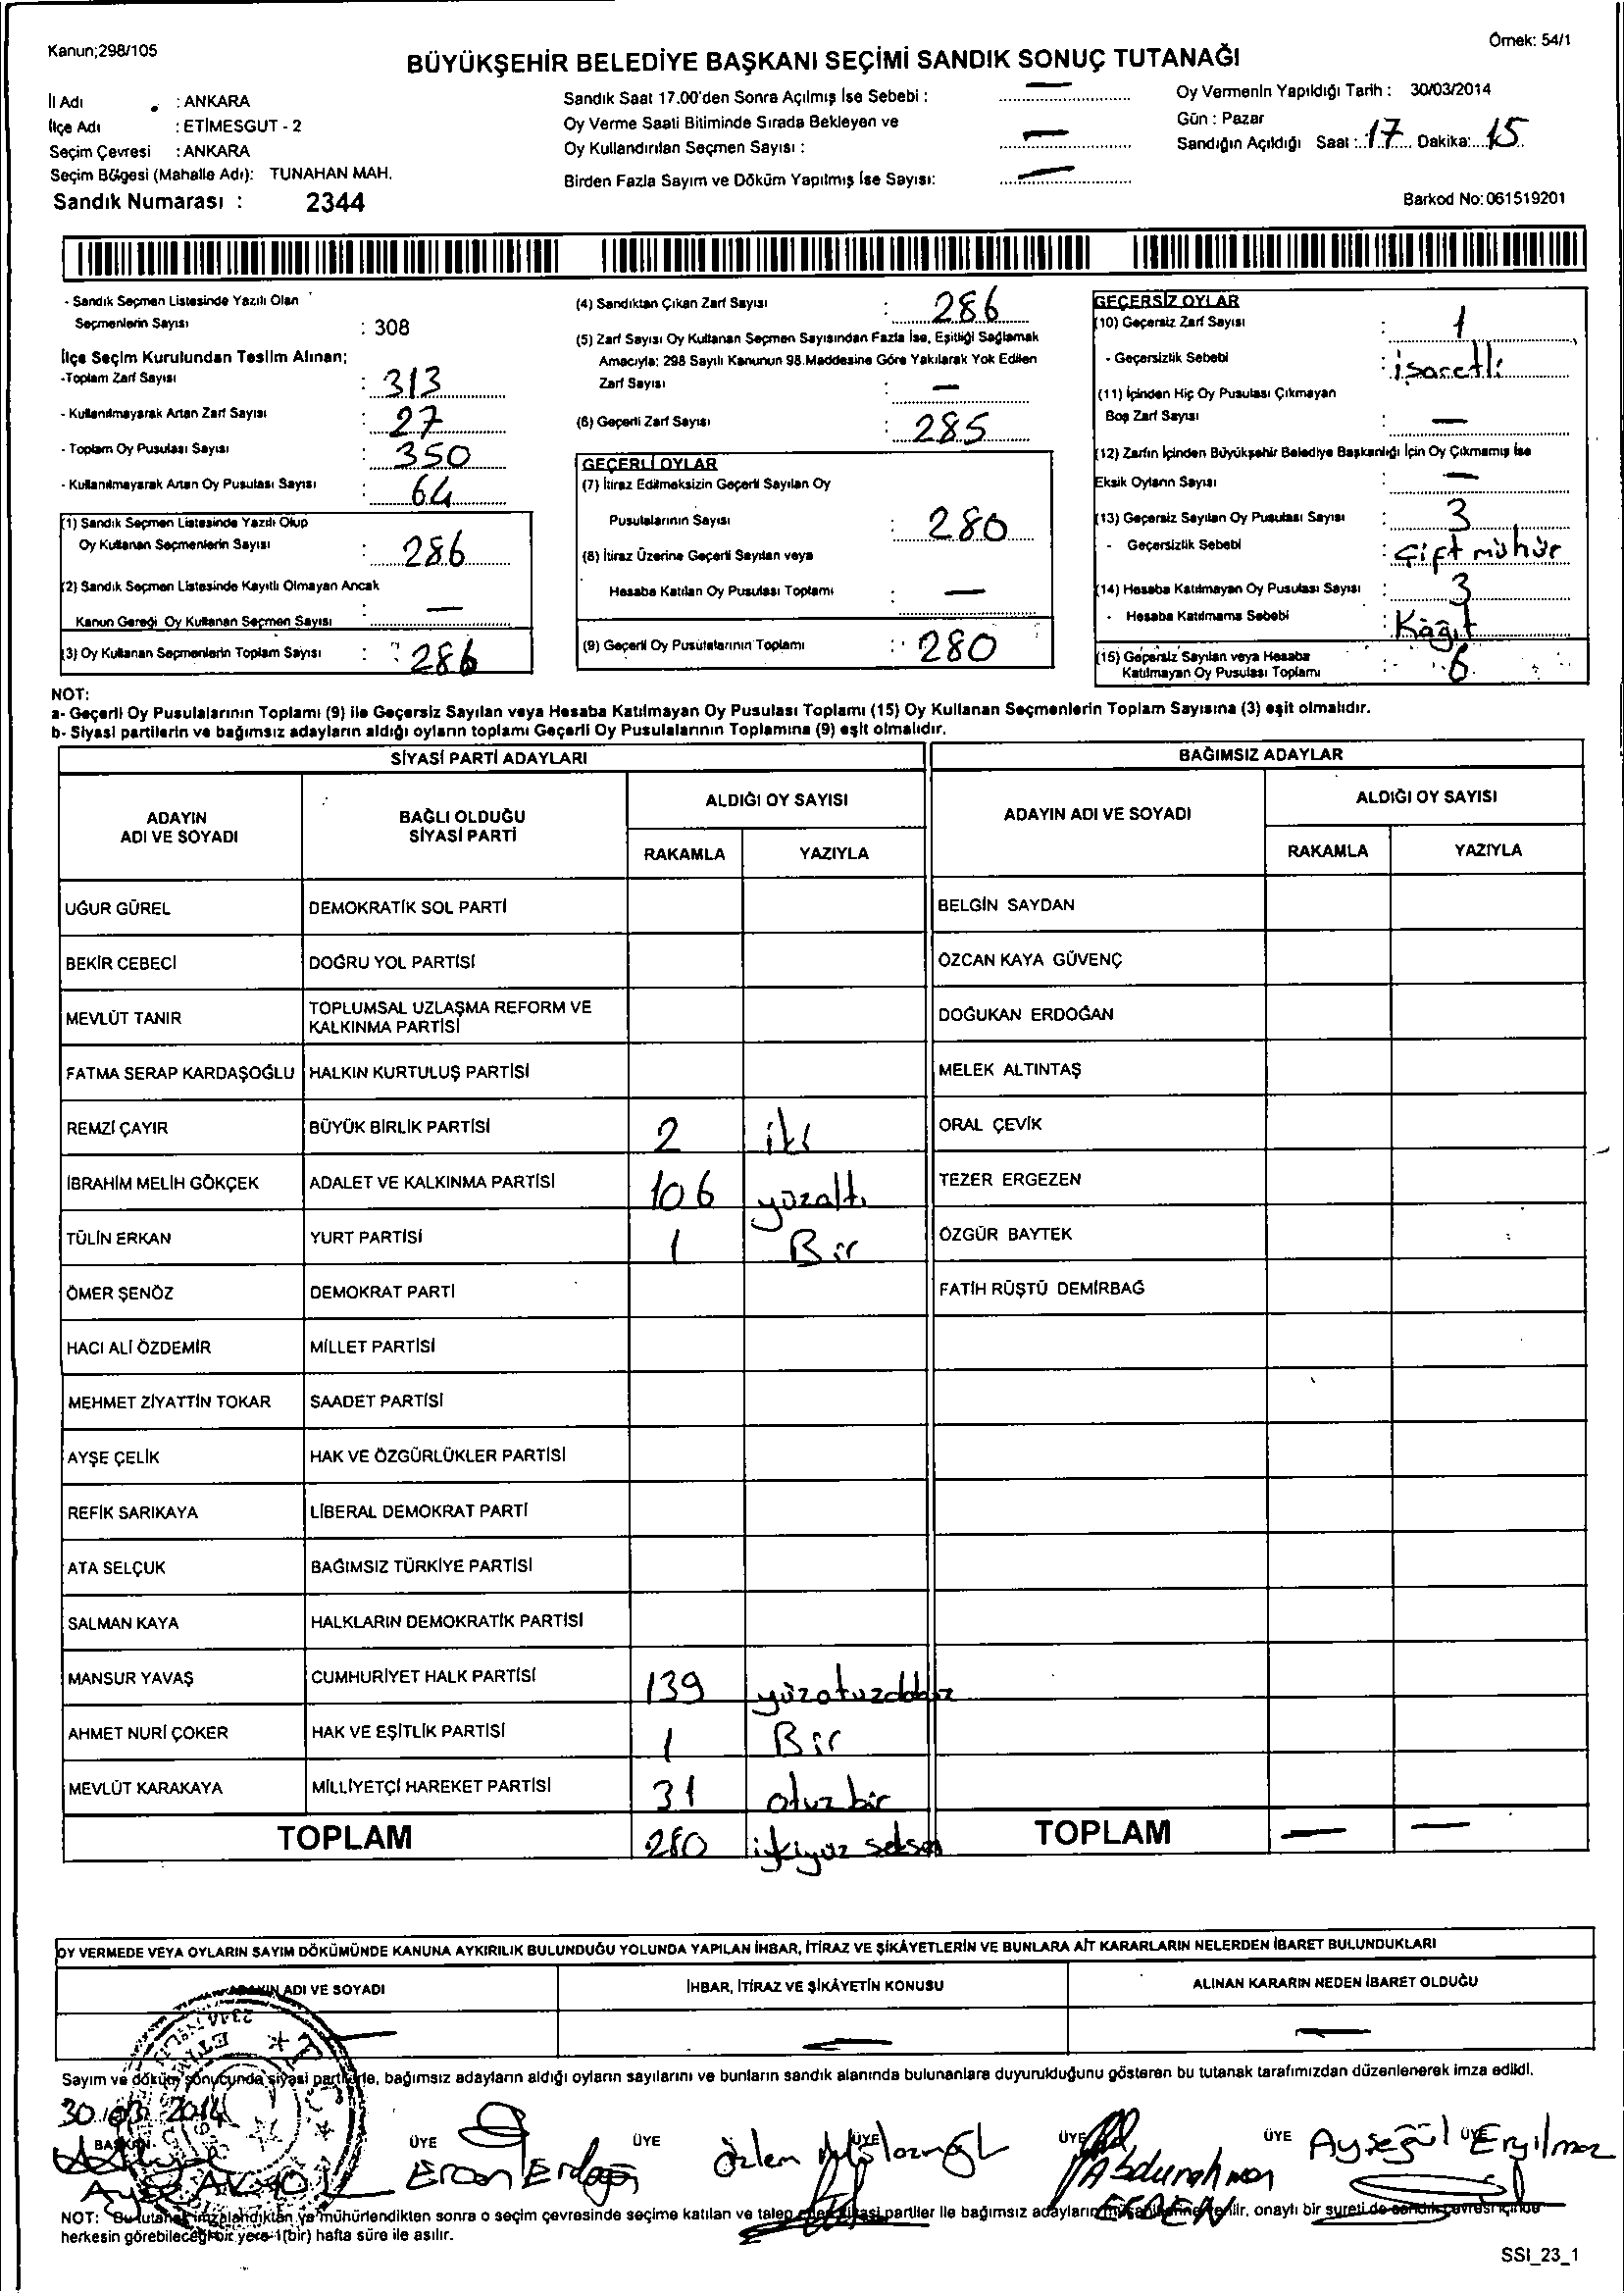 Kanun;298/105
Örnek: 54/1
BÜYÜKŞEHİR BELEDİYE BAŞKANI SEÇİMİ SANDIK SONUÇ TUTANAĞI
İl Adı : ANKARA
İlçe Adı : ETİMESGUT - 2
Seçim Çevresi : ANKARA
Seçim Bölgesi (Mahalle Adı): TUNAHAN MAH.
Sandık Numarası : 2344
Sandık Saat 17.00'den Sonra Açılmış İse Sebebi : —
Oy Verme Saati Bitiminde Sırada Bekleyen ve
Oy Kullandırılan Seçmen Sayısı : —
Birden Fazla Sayım ve Döküm Yapılmış İse Sayısı: —
Oy Vermenin Yapıldığı Tarih : 30/03/2014
Gün : Pazar
Sandığın Açıldığı Saat : 17 Dakika: 15
Barkod No: 061519201
- Sandık Seçmen Listesinde Yazılı Olan
Seçmenlerin Sayısı : 308
İlçe Seçim Kurulundan Teslim Alınan;
-Toplam Zarf Sayısı : 313
- Kullanılmayarak Artan Zarf Sayısı : 27
- Toplam Oy Pusulası Sayısı : 350
- Kullanılmayarak Artan Oy Pusulası Sayısı : 64
(1) Sandık Seçmen Listesinde Yazılı Olup
Oy Kullanan Seçmenlerin Sayısı : 286
(2) Sandık Seçmen Listesinde Kayıtlı Olmayan Ancak
Kanun Gereği Oy Kullanan Seçmen Sayısı : —
(3) Oy Kullanan Seçmenlerin Toplam Sayısı : 286
(4) Sandıktan Çıkan Zarf Sayısı : 286
(5) Zarf Sayısı Oy Kullanan Seçmen Sayısından Fazla İse, Eşitliği Sağlamak
Amacıyla; 298 Sayılı Kanunun 98.Maddesine Göre Yakılarak Yok Edilen
Zarf Sayısı : —
(6) Geçerli Zarf Sayısı : 285
GEÇERLİ OYLAR
(7) İtiraz Edilmeksizin Geçerli Sayılan Oy
Pusulalarının Sayısı : 280
(8) İtiraz Üzerine Geçerli Sayılan veya
Hesaba Katılan Oy Pusulası Toplamı : —
(9) Geçerli Oy Pusulalarının Toplamı : 280
GEÇERSİZ OYLAR
(10) Geçersiz Zarf Sayısı : 1
- Geçersizlik Sebebi : işaretli
(11) İçinden Hiç Oy Pusulası Çıkmayan
Boş Zarf Sayısı : —
(12) Zarfın İçinden Büyükşehir Belediye Başkanlığı İçin Oy Çıkmamış İse
Eksik Oyların Sayısı : —
(13) Geçersiz Sayılan Oy Pusulası Sayısı : 3
- Geçersizlik Sebebi : Çift mühür
(14) Hesaba Katılmayan Oy Pusulası Sayısı : 3
- Hesaba Katılmama Sebebi : Kağıt
(15) Geçersiz Sayılan veya Hesaba
Katılmayan Oy Pusulası Toplamı : 6
NOT:
a- Geçerli Oy Pusulalarının Toplamı (9) ile Geçersiz Sayılan veya Hesaba Katılmayan Oy Pusulası Toplamı (15) Oy Kullanan Seçmenlerin Toplam Sayısına (3) eşit olmalıdır.
b- Siyasi partilerin ve bağımsız adayların aldığı oyların toplamı Geçerli Oy Pusulalarının Toplamına (9) eşit olmalıdır.
SİYASİ PARTİ ADAYLARI
BAĞIMSIZ ADAYLAR
ADAYIN ADI VE SOYADI
BAĞLI OLDUĞU SİYASİ PARTİ
ALDIĞI OY SAYISI
RAKAMLA YAZIYLA
ADAYIN ADI VE SOYADI
ALDIĞI OY SAYISI
RAKAMLA YAZIYLA
UĞUR GÜREL DEMOKRATİK SOL PARTİ BELGİN SAYDAN
BEKİR CEBECİ DOĞRU YOL PARTİSİ ÖZCAN KAYA GÜVENÇ
MEVLÜT TANIR TOPLUMSAL UZLAŞMA REFORM VE KALKINMA PARTİSİ DOĞUKAN ERDOĞAN
FATMA SERAP KARDAŞOĞLU HALKIN KURTULUŞ PARTİSİ MELEK ALTINTAŞ
REMZİ ÇAYIR BÜYÜK BİRLİK PARTİSİ 2 iki ORAL ÇEVİK
İBRAHİM MELİH GÖKÇEK ADALET VE KALKINMA PARTİSİ 106 yüzaltı TEZER ERGEZEN
TÜLİN ERKAN YURT PARTİSİ 1 Bir ÖZGÜR BAYTEK
ÖMER ŞENÖZ DEMOKRAT PARTİ FATİH RÜŞTÜ DEMİRBAĞ
HACI ALİ ÖZDEMİR MİLLET PARTİSİ
MEHMET ZİYATTİN TOKAR SAADET PARTİSİ
AYŞE ÇELİK HAK VE ÖZGÜRLÜKLER PARTİSİ
REFİK SARIKAYA LİBERAL DEMOKRAT PARTİ
ATA SELÇUK BAĞIMSIZ TÜRKİYE PARTİSİ
SALMAN KAYA HALKLARIN DEMOKRATİK PARTİSİ
MANSUR YAVAŞ CUMHURİYET HALK PARTİSİ 139
AHMET NURİ ÇOKER HAK VE EŞİTLİK PARTİSİ 1 Bir
MEVLÜT KARAKAYA MİLLİYETÇİ HAREKET PARTİSİ 31 otuzbir
TOPLAM 280 ikiyüz seksen TOPLAM — —
OY VERMEDE VEYA OYLARIN SAYIM DÖKÜMÜNDE KANUNA AYKIRILIK BULUNDUĞU YOLUNDA YAPILAN İHBAR, İTİRAZ VE ŞİKÂYETLERİN VE BUNLARA AİT KARARLARIN NELERDEN İBARET BULUNDUKLARI
ADAYIN ADI VE SOYADI İHBAR, İTİRAZ VE ŞİKÂYETİN KONUSU ALINAN KARARIN NEDEN İBARET OLDUĞU
— — —
Sayım ve döküm sonucunda siyasi partilerle, bağımsız adayların aldığı oyların sayılarını ve bunların sandık alanında bulunanlara duyurulduğunu gösteren bu tutanak tarafımızdan düzenlenerek imza edildi.
30.03.2014
BAŞKAN ÜYE ÜYE ÜYE ÜYE ÜYE ÜYE
Ercan Erdoğan Özlem Abdurahman EREN Ayşegül Eryılmaz
NOT: Bu tutanak imzalandıktan ve mühürlendikten sonra o seçim çevresinde seçime katılan ve talep eden siyasi partiler ile bağımsız adayların verilir, onaylı bir sureti de sandık çevresi içinde
herkesin görebileceği bir yere 1(bir) hafta süre ile asılır.
SSI_23_1